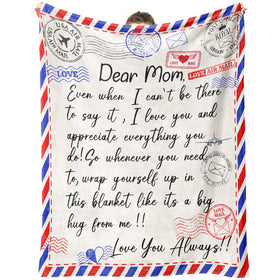 USA AIR MAIL
LOVE
LOVE MAIL
ROYAL
Dear Mom,
LOVE AIR MAIL
Even when I can't be there
to say it , I love you and
appreciate everything you
do!So whenever you need
to wrap yourself up in
this blanket like its a big
hug from me !!
LOVE MAIL
Love You Always!!